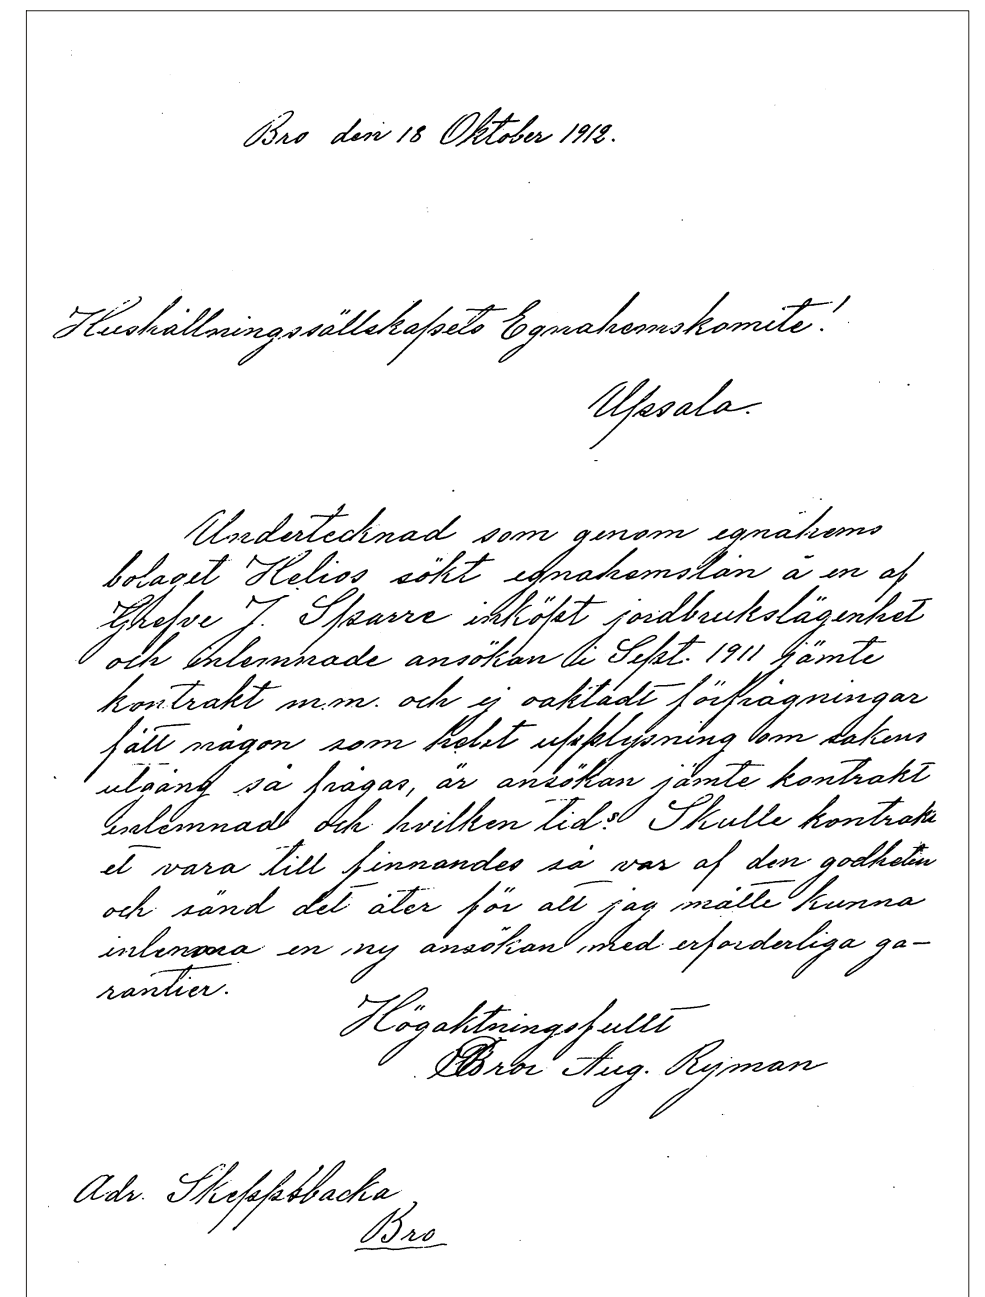 Bro den 18 Oktober 1912.
Hushållningssällskapets Egnahemskomite!
Upsala.
Undertecknad som genom egnahems
bolaget Helios sökt egnahemslån å en af
Grefve J. Sparre inköpt jordbrukslägenhet
och inlemnade ansökan i Sept. 1911 jämte
kontrakt m.m. och ej oaktadt förfrågningar
fått någon som helst upplysning om sakens
utgång så frågas, är ansökan jämte kontrakt
inlemnad och hvilken tid? Skulle kontrakt
et vara till finnandes så var af den godheten
och sänd det åter för att jag måtte kunna
inlemna en ny ansökan med erforderliga ga-
rantier.
Högaktningsfullt
Bror Aug. Ryman
Adr. Skeppsbacka
Bro